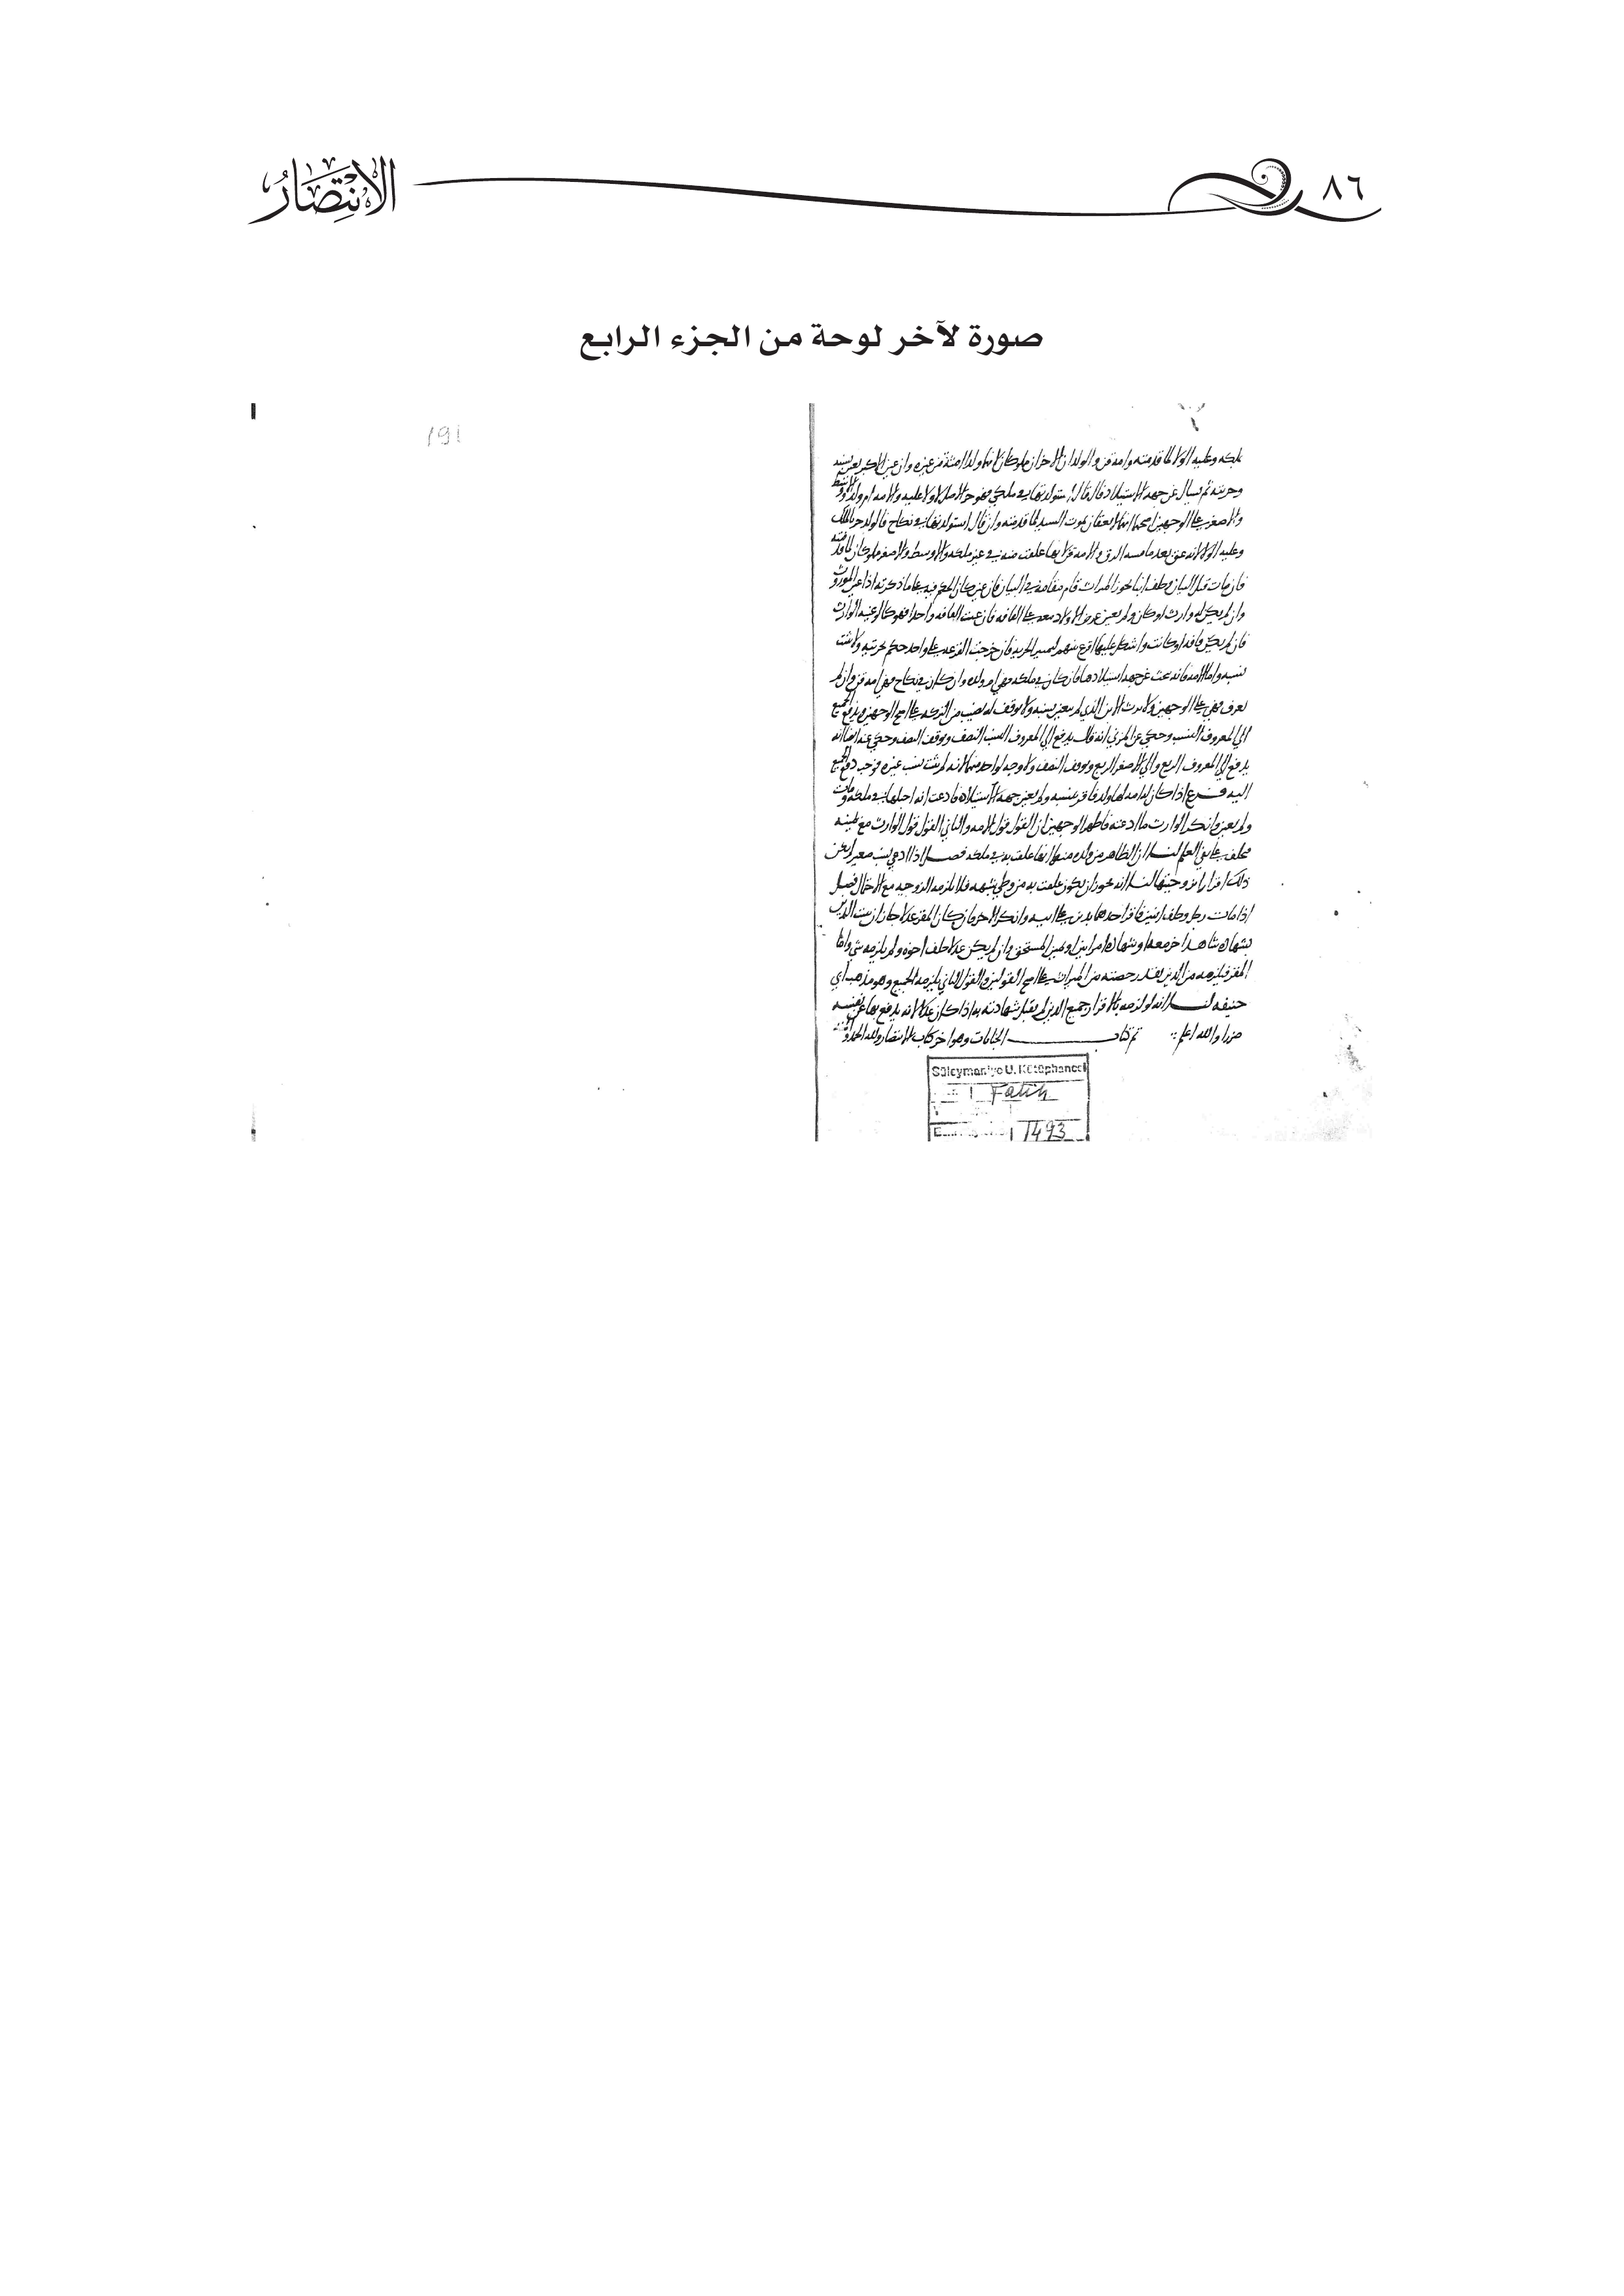 ٨٦
الانْتِصَارُ
صورة لآخر لوحة من الجزء الرابع
191
ملكه وعليه الولا لما قدمته وامه قن والولدان الاخران
وحريته ثم يسال عن جهه الاستيلاد فان قال استولدتها في ملكي فهو حر الاصل لا ولا عليه والامه ام ولد
والاصغر علي الوجهين اصحهما انهما يعتقان بموت السيد لما قدمته وان قال استولدتها في نكاح فالولد حر
وعليه الولا لانه عتق بعد ما مسه الرق والامه قن لانها علقت منه في غير ملكه والاوسط والاصغر مملوكان لما
فان مات قبل البيان وخلف ابنا يحوز الميراث قام مقامه في البيان فان عين كان الحكم فيه علي ما ذكرته اذا عين الموروث
وان لم يكن له وارث او كان ولم يعين عرض الاولاد بعده علي القافه فان عينت القافه واحدا فهو كما لو عينه الوارث
فان لم يكن قافه او كانت واشكل عليها اقرع بينهم لتمييز الحريه فان خرجت القرعه علي واحد حكم بحريته ولا يثبت
نسبه واما الامه فانه يبحث عن جهه استيلادها فان كان في ملكه فهي ام ولده وان كان في نكاح فهي امه قن وان لم
يعرف فهي علي الوجهين ولا يرث الابن الذي لم يتعين نسبه ولا يوقف له نصيب من التركه علي اصح الوجهين ويدفع الجميع
الي المعروف النسب وحكي عن المزني انه قال يدفع الي المعروف النسب النصف ويوقف النصف وحكي عنه ايضا انه
يدفع الي المعروف الربع والي الاصغر الربع ويوقف النصف ولا وجه لواحد منهما لانه لم يثبت نسب غيره فوجب دفع الجميع
اليه فرع اذا كان له امه لها ولد فاقر بنسبه ولم يعين جهه الاستيلاد فادعت انه احبلها في ملكه ومات
ولم يعين وانكر الوارث ما ادعته فاظهر الوجهين ان القول قول الامه والثاني القول قول الوارث مع يمينه
يحلف علي نفي العلم لنا ان الظاهر من ولده منها انها علقت به في ملكه فصل اذا ادعي نسب صغير لم يكن
ذلك اقرارا بزوجيتها لنا انه يجوز ان يكون علقت به من وطي شبهه فلا يلزمه الزوجيه مع الاحتمال فصل
اذا مات رجل وخلف ابنين فاقر احدهما بدين علي ابيه وانكر الاخر فان كان المقر عدلا جاز ان يثبت الدين
بشهاده شاهد اخر معه او بشهاده امراتين او يمين المستحق وان لم يكن عدلا حلف اخوه ولم يلزمه شي واما
المقر فيلزمه من الدين بقدر حصته من الميراث علي اصح القولين والقول الثاني يلزمه الجميع وهو مذهب ابي
حنيفه لنا انه لو لزمه بالاقرار جميع الدين لم يقبل شهادته به اذا كان عدلا لانه يدفع بها عن نفسه
ضررا والله اعلم تم كتاب وهو اخر كتاب الانتصار ولله الحمد
Süleymaniye U. Kütüphanesi
Fatih
1493